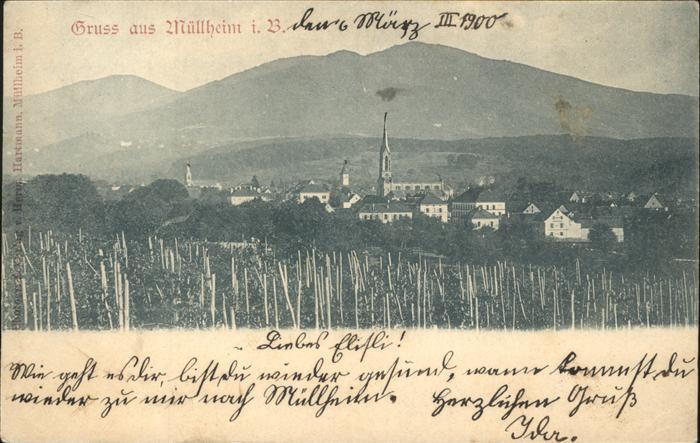 Gruss aus Müllheim i. B. den 6 März III 1900
Herm. Hartmann, Müllheim i. B.
Liebes Elisli!
Wie geht es dir, bist du wieder gesund, wann kommst du
wieder zu mir nach Müllheim. Herzlichen Gruß
Ida.